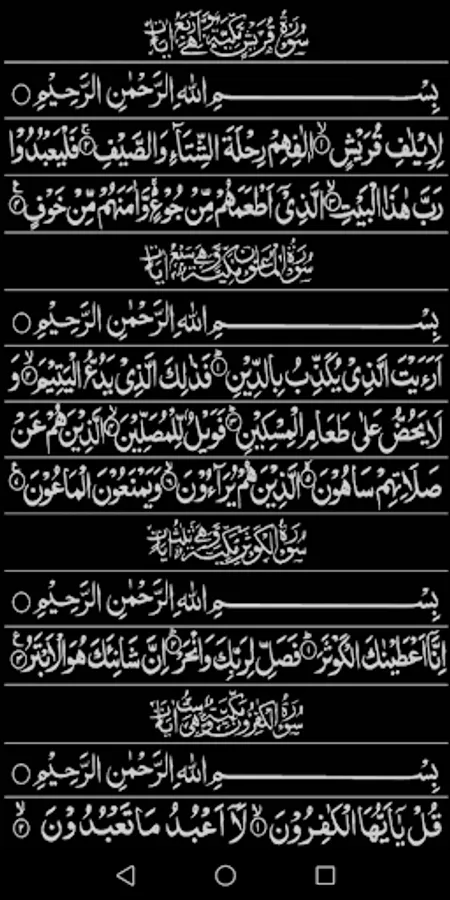 سُوْرَةُ قُرَيْشٍ مَكِّيَّةٌ وَّهِيَ اَرْبَعُ اٰيَاتٍ
بِسْــــــــــــــــــمِ اللهِ الرَّحْمٰنِ الرَّحِيْمِ ○
لِاِيْلٰفِ قُرَيْشٍ ۙ﴿۱﴾ اٖلٰفِهِمْ رِحْلَةَ الشِّتَآءِ وَالصَّيْفِ ۚ﴿۲﴾ فَلْيَعْبُدُوْا
رَبَّ هٰذَا الْبَيْتِ ۙ﴿۳﴾ الَّذِيْٓ اَطْعَمَهُمْ مِّنْ جُوْعٍ ۙ وَّاٰمَنَهُمْ مِّنْ خَوْفٍ ﴿۴﴾
سُوْرَةُ الْمَاعُوْنِ مَكِّيَّةٌ وَّهِيَ سَبْعُ اٰيَاتٍ
بِسْــــــــــــــــــمِ اللهِ الرَّحْمٰنِ الرَّحِيْمِ ○
اَرَءَيْتَ الَّذِيْ يُكَذِّبُ بِالدِّيْنِ ؕ﴿۱﴾ فَذٰلِكَ الَّذِيْ يَدُعُّ الْيَتِيْمَ ۙ﴿۲﴾ وَ
لَا يَحُضُّ عَلٰى طَعَامِ الْمِسْكِيْنِ ؕ﴿۳﴾ فَوَيْلٌ لِّلْمُصَلِّيْنَ ۙ﴿۴﴾ الَّذِيْنَ هُمْ عَنْ
صَلَاتِهِمْ سَاهُوْنَ ۙ﴿۵﴾ الَّذِيْنَ هُمْ يُرَآءُوْنَ ۙ﴿۶﴾ وَيَمْنَعُوْنَ الْمَاعُوْنَ ﴿۷﴾
سُوْرَةُ الْكَوْثَرِ مَكِّيَّةٌ وَّهِيَ ثَلٰثُ اٰيَاتٍ
بِسْــــــــــــــــــمِ اللهِ الرَّحْمٰنِ الرَّحِيْمِ ○
اِنَّآ اَعْطَيْنٰكَ الْكَوْثَرَ ؕ﴿۱﴾ فَصَلِّ لِرَبِّكَ وَانْحَرْ ؕ﴿۲﴾ اِنَّ شَانِئَكَ هُوَ الْاَبْتَرُ ﴿۳﴾
سُوْرَةُ الْكٰفِرُوْنَ مَكِّيَّةٌ وَّهِيَ سِتُّ اٰيَاتٍ
بِسْــــــــــــــــــمِ اللهِ الرَّحْمٰنِ الرَّحِيْمِ ○
قُلْ يٰٓاَيُّهَا الْكٰفِرُوْنَ ۙ﴿۱﴾ لَآ اَعْبُدُ مَا تَعْبُدُوْنَ ۙ﴿۲﴾